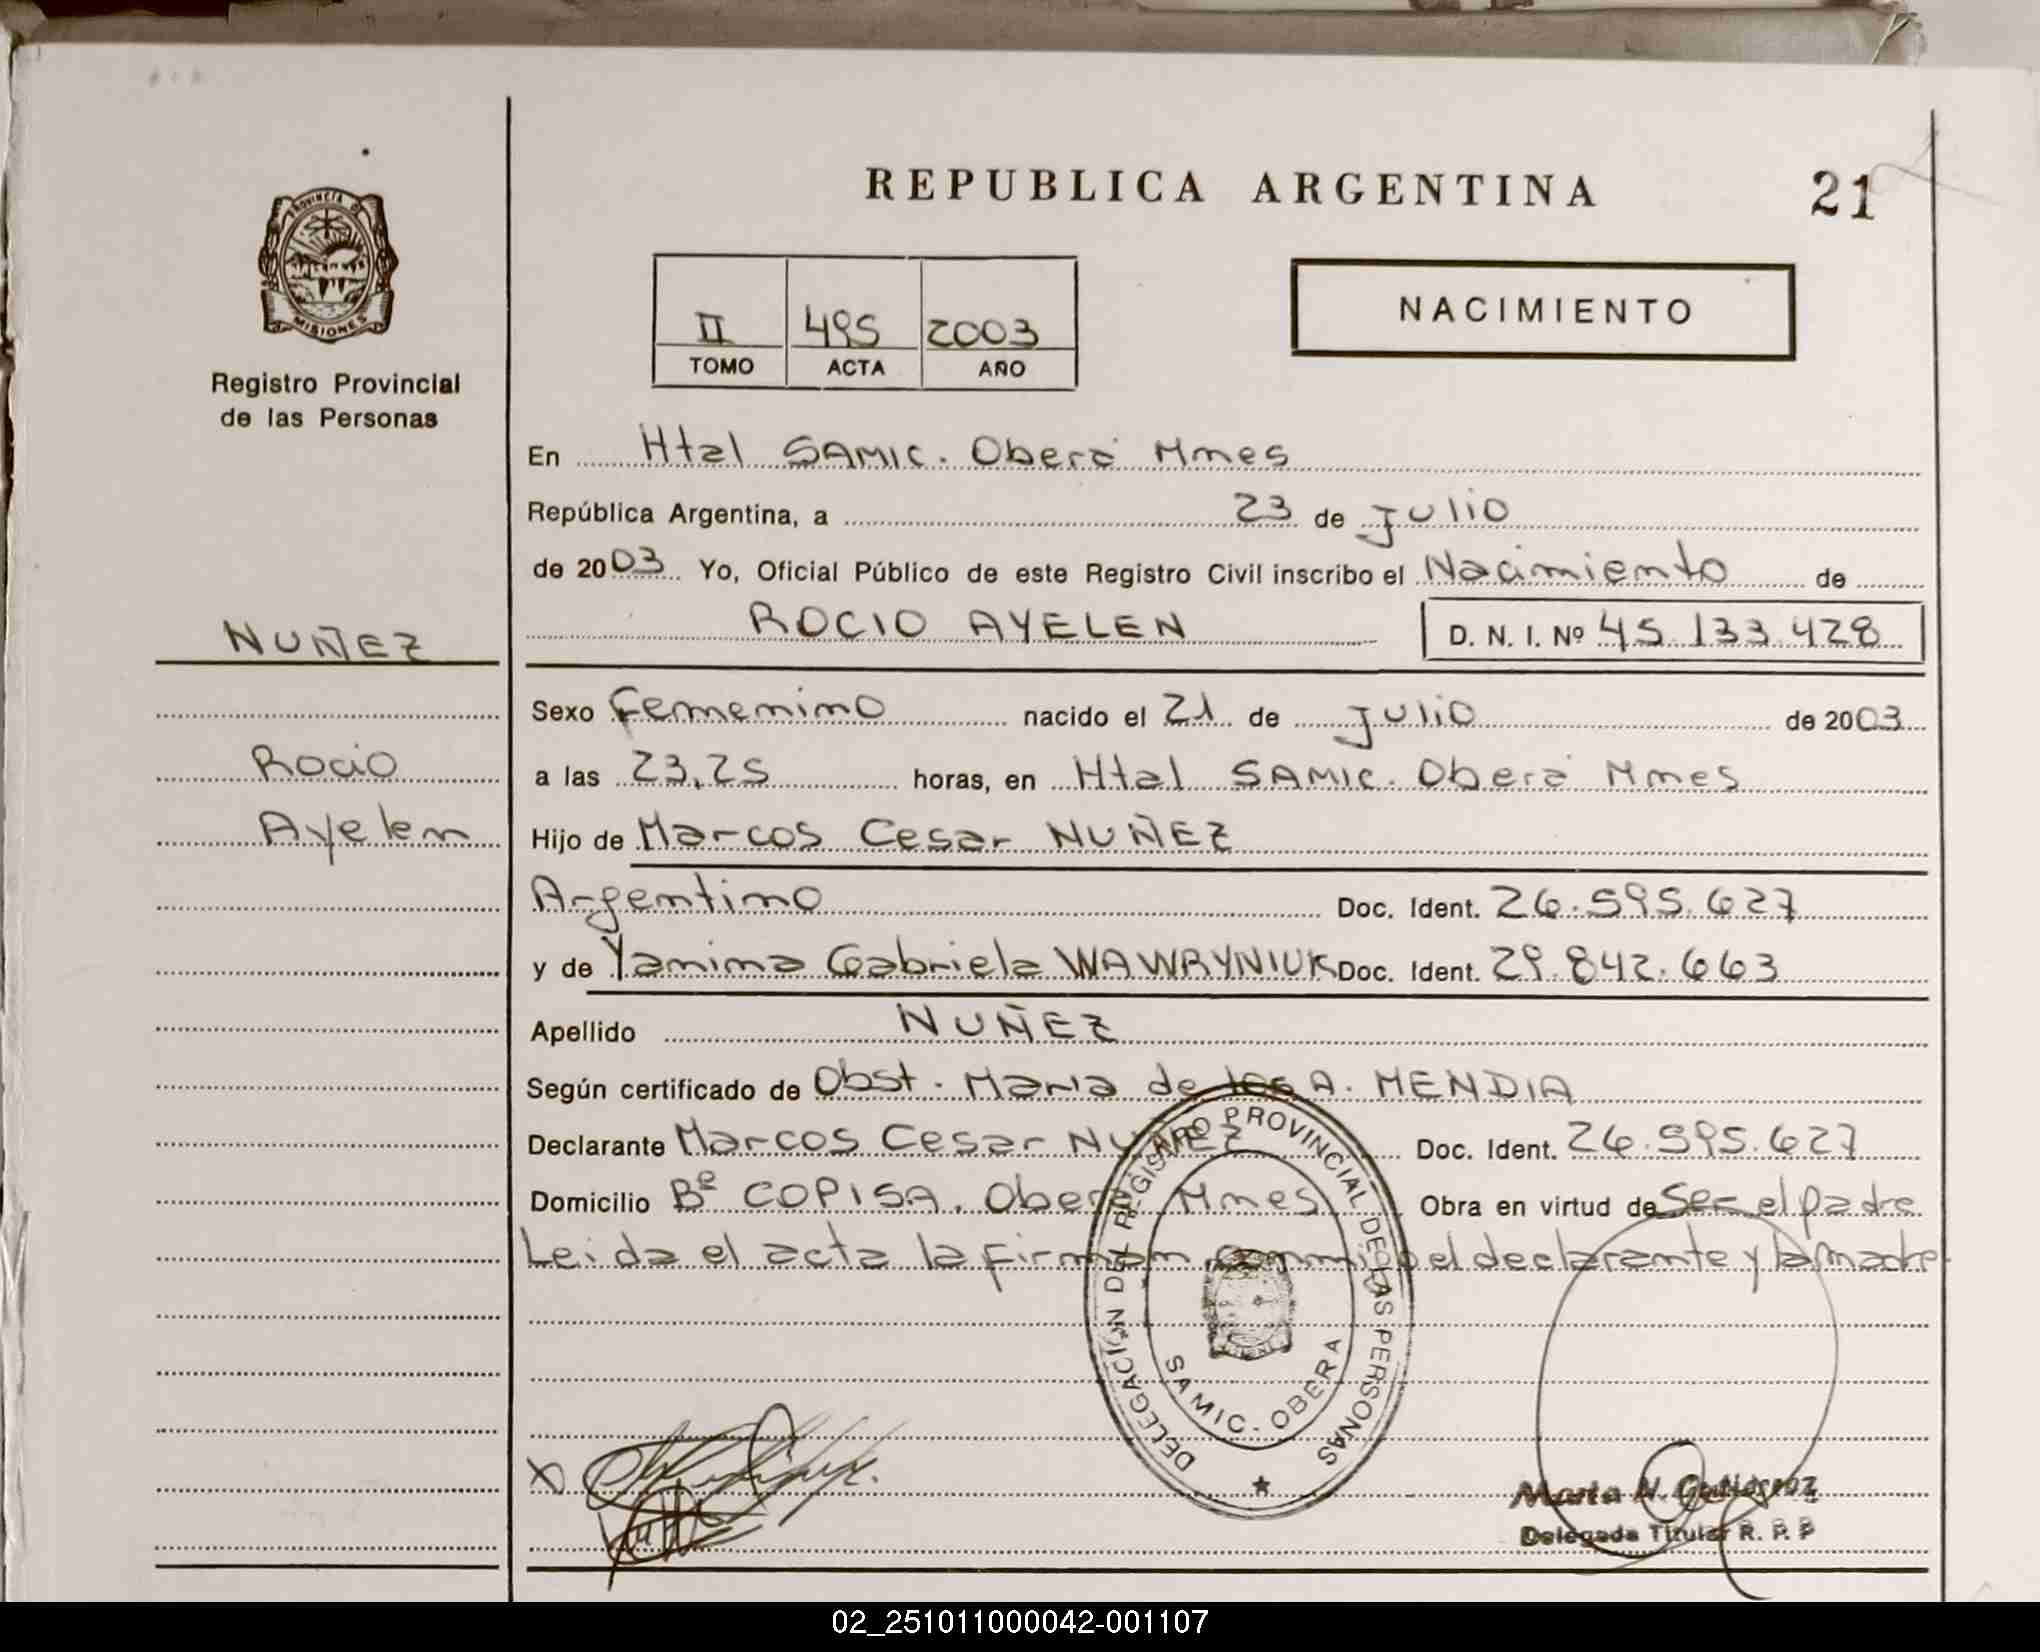 REPUBLICA ARGENTINA
21
PROVINCIA DE
MISIONES
Registro Provincial
de las Personas
II 495 2003
TOMO ACTA AÑO
NACIMIENTO
En Htal SAMIC. Oberá Mnes
República Argentina, a 23 de Julio
de 2003 Yo, Oficial Público de este Registro Civil inscribo el Nacimiento de
ROCIO AYELEN D. N. I. Nº 45.133.428
NUÑEZ
Rocio
Ayelen
Sexo Femenino nacido el 21 de Julio de 2003
a las 23,25 horas, en Htal SAMIC. Oberá Mnes
Hijo de Marcos Cesar NUÑEZ
Argentino Doc. Ident. 26.595.627
y de Yanina Gabriela WAWRYNIUK Doc. Ident. 29.842.663
Apellido NUÑEZ
Según certificado de Obst. María de los A. MENDIA
Declarante Marcos Cesar NUÑEZ Doc. Ident. 26.595.627
Domicilio Bº COPISA. Oberá Mnes Obra en virtud de Ser el padre
Leida el acta la firman conmigo el declarante y la madre
DELEGACION DEL REGISTRO PROVINCIAL DE LAS PERSONAS
SAMIC. OBERA
Marta N. Gutierrez
Delegada Titular R. P. P
02_251011000042-001107